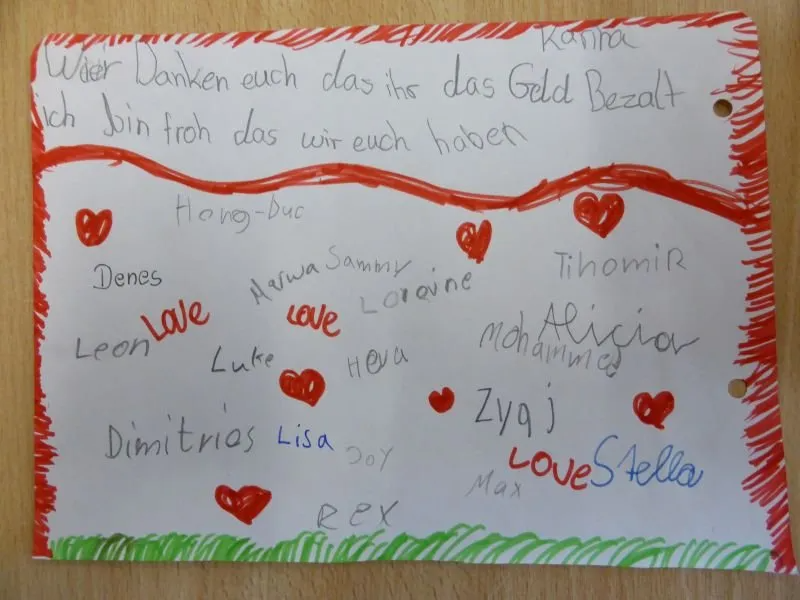 Karina
Wier Danken euch das ihr das Geld Bezalt
ich bin froh das wir euch haben
Hong-Duc
Denes
Merwa Sammy
Loreine
Tihomir
Love
Love
Leon
Luke
Heva
Mohammed
Alicia
Zyqj
Dimitrios
Lisa
Joy
Love
Stella
Max
Rex